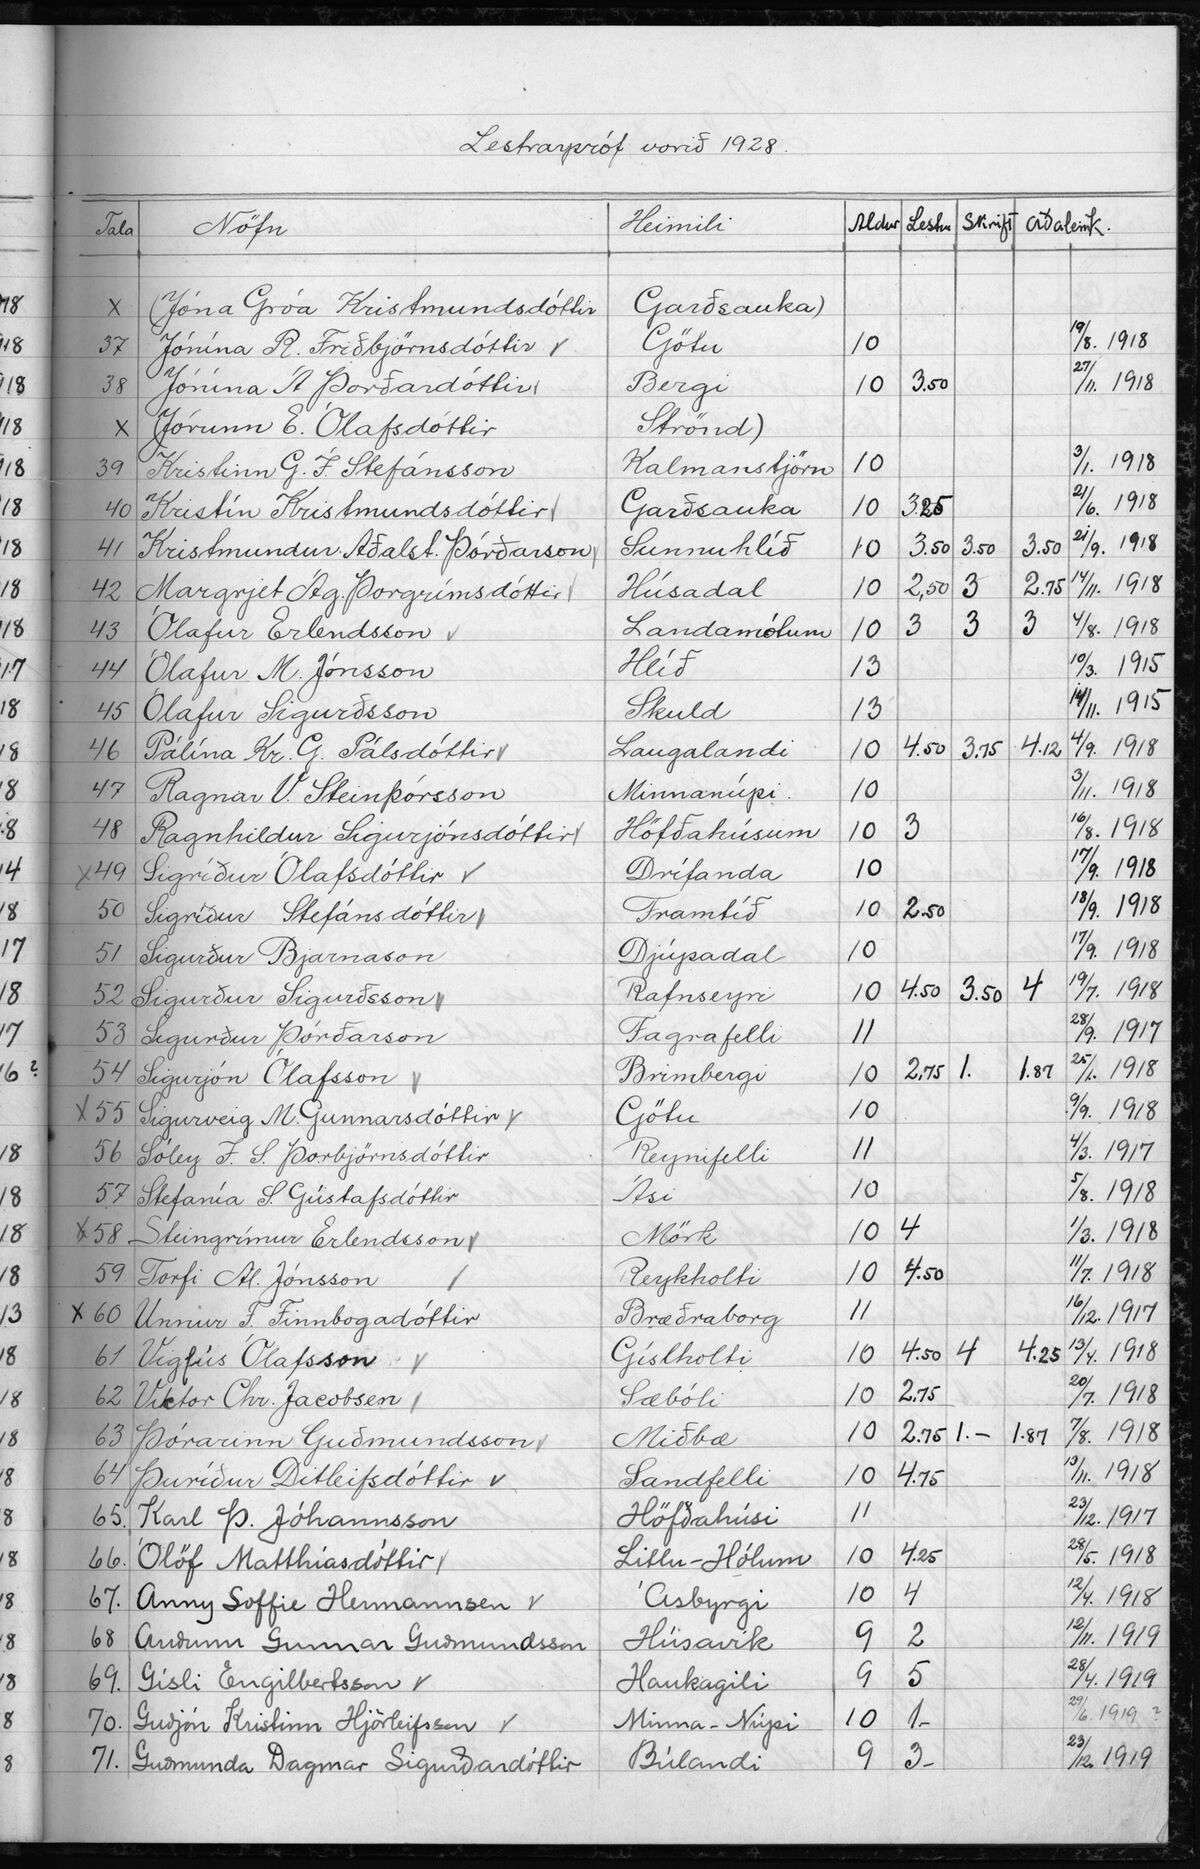 Lestrarpróf vorið 1928.
Tala Nöfn Heimili Aldur Lestur Skrift Aðaleink.
18 x (Jóna Gróa Kristmundsdóttir Garðsauka)
18 37 Jónína R. Friðbjörnsdóttir v Götu 10 19/8. 1918
18 38 Jónína Á Þorðardóttir Bergi 10 3.50 27/11. 1918
18 x (Jórunn E. Ólafsdóttir Strönd)
18 39 Kristinn G. F. Stefánsson Kalmanstjörn 10 3/1. 1918
18 40 Kristín Kristmundsdóttir Garðsauka 10 3.25 21/6. 1918
18 41 Kristmundur Aðalst. Þórðarson Sunnuhlíð 10 3.50 3.50 3.50 21/9. 1918
18 42 Margrjet Ág. Þorgrímsdóttir Húsadal 10 2,50 3 2.75 14/11. 1918
18 43 Ólafur Erlendsson v Landamólum 10 3 3 3 4/8. 1918
17 44 Ólafur M. Jónsson Hlíð 13 10/3. 1915
18 45 Ólafur Sigurðsson Skuld 13 14/11. 1915
18 46 Pálína Kr. G. Pálsdóttir v Laugalandi 10 4.50 3.75 4.12 4/9. 1918
8 47 Ragnar V. Steinþórsson Minnanúpi. 10 3/11. 1918
8 48 Ragnhildur Sigurjónsdóttir Höfðahúsum 10 3 16/8. 1918
14 x 49 Sigríður Ólafsdóttir v Drífanda 10 17/9. 1918
18 50 Sigríður Stefánsdóttir Framtíð 10 2.50 18/9. 1918
17 51 Sigurður Bjarnason Djúpadal 10 17/9. 1918
18 52 Sigurður Sigurðsson v Rafnseyri 10 4.50 3.50 4 19/7. 1918
17 53 Sigurður Þórðarson Fagrafelli 11 28/9. 1917
16? 54 Sigurjón Ólafsson v Brimbergi 10 2,75 1. 1.87 25/1. 1918
x 55 Sigurveig M. Gunnarsdóttir v Götu 10 9/9. 1918
18 56 Sóley F. S. Þorbjörnsdóttir Reynifelli 11 4/3. 1917
18 57 Stefanía S. Gústafsdóttir Ási 10 5/8. 1918
18 x 58 Steingrímur Erlendsson v Mörk 10 4 1/3. 1918
18 59 Torfi Al. Jónsson / Reykholti 10 4.50 11/7. 1918
13 x 60 Unnur F. Finnbogadóttir Bræðraborg 11 16/12. 1917
18 61 Vigfús Ólafsson v Gíslholti 10 4.50 4 4.25 13/4. 1918
18 62 Viktor Chr. Jacobsen / Sæbóli 10 2.75 20/7. 1918
18 63 Þórarinn Guðmundsson v Miðbæ 10 2.75 1.- 1.87 7/8. 1918
18 64 Þuríður Ditleifsdóttir v Sandfelli 10 4.75 13/11. 1918
8 65. Karl Þ. Jóhannsson Höfðahúsi 11 23/12. 1917
18 66. Ólöf Matthíasdóttir Litlu-Hólum 10 4.25 28/5. 1918
18 67. Anny Soffie Hermannsen v Ásbyrgi 10 4 12/4. 1918
8 68 Auðunn Gunnar Guðmundsson Húsavík 9 2 12/11. 1919
8 69. Gísli Engilbertsson v Haukagili 9 5 28/4. 1919
8 70. Guðjón Kristinn Hjörleifsson v Minna-Núpi 10 1- 29/6. 1919?
8 71. Guðmunda Dagmar Sigurðardóttir Búlandi 9 3- 23/12. 1919